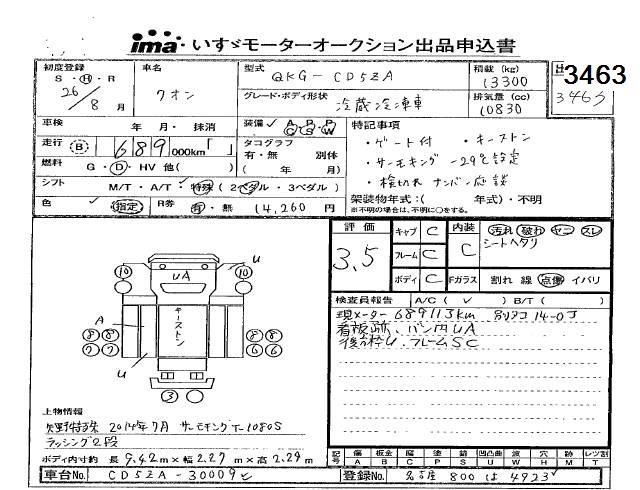 ima いすゞモーターオークション出品申込書
初度登録 S・H・R 26/8 月
車名 クオン
型式 QKG-CD5ZA
積載(kg) 13300
3463
グレード・ボディ形状 冷蔵冷凍車
排気量(cc) 10830
車検 年 月・抹消
装備 A/C P/S P/W
特記事項
走行 B 689 000km
タコグラフ 有・無 別体 ( 年 月)
・ゲート付 ・キーストン
・サーモキング -29℃設定
・検切れ ナンバー応談
燃料 G・D・HV 他( )
シフト M/T・A/T・特殊(2ペダル・3ペダル)
架装物年式:( 年式)・不明
※不明の場合は、不明に○をする。
色 指定 R券 有・無 14,260 円
評価 3.5
キャブ C
フレーム C
ボディ C
内装 C
汚れ 破れ ヤニ スレ
シートヘタリ
Fガラス 割れ 線 点傷 イバリ
検査員報告 A/C( ) B/T( )
現メーター 689113km
看板跡、バン内UA
後方枠U、フレームSC
10 UA 10 U
A キーストン
8 8 8 8
7 7 6 6
U
3
上物情報
矢野特殊 2014年7月 サーモキング T-1080S
ラッシング2段
ボディ内寸約 長 9.42 m×幅 2.27 m×高 2.29 m
記号 傷 板金 腐 塗 錆 凹凸曲 波 穴 跡 レツ割
A B C P S U W H M T
車台No. CD5ZA-30009
登録No. 名古屋 800 は 4923